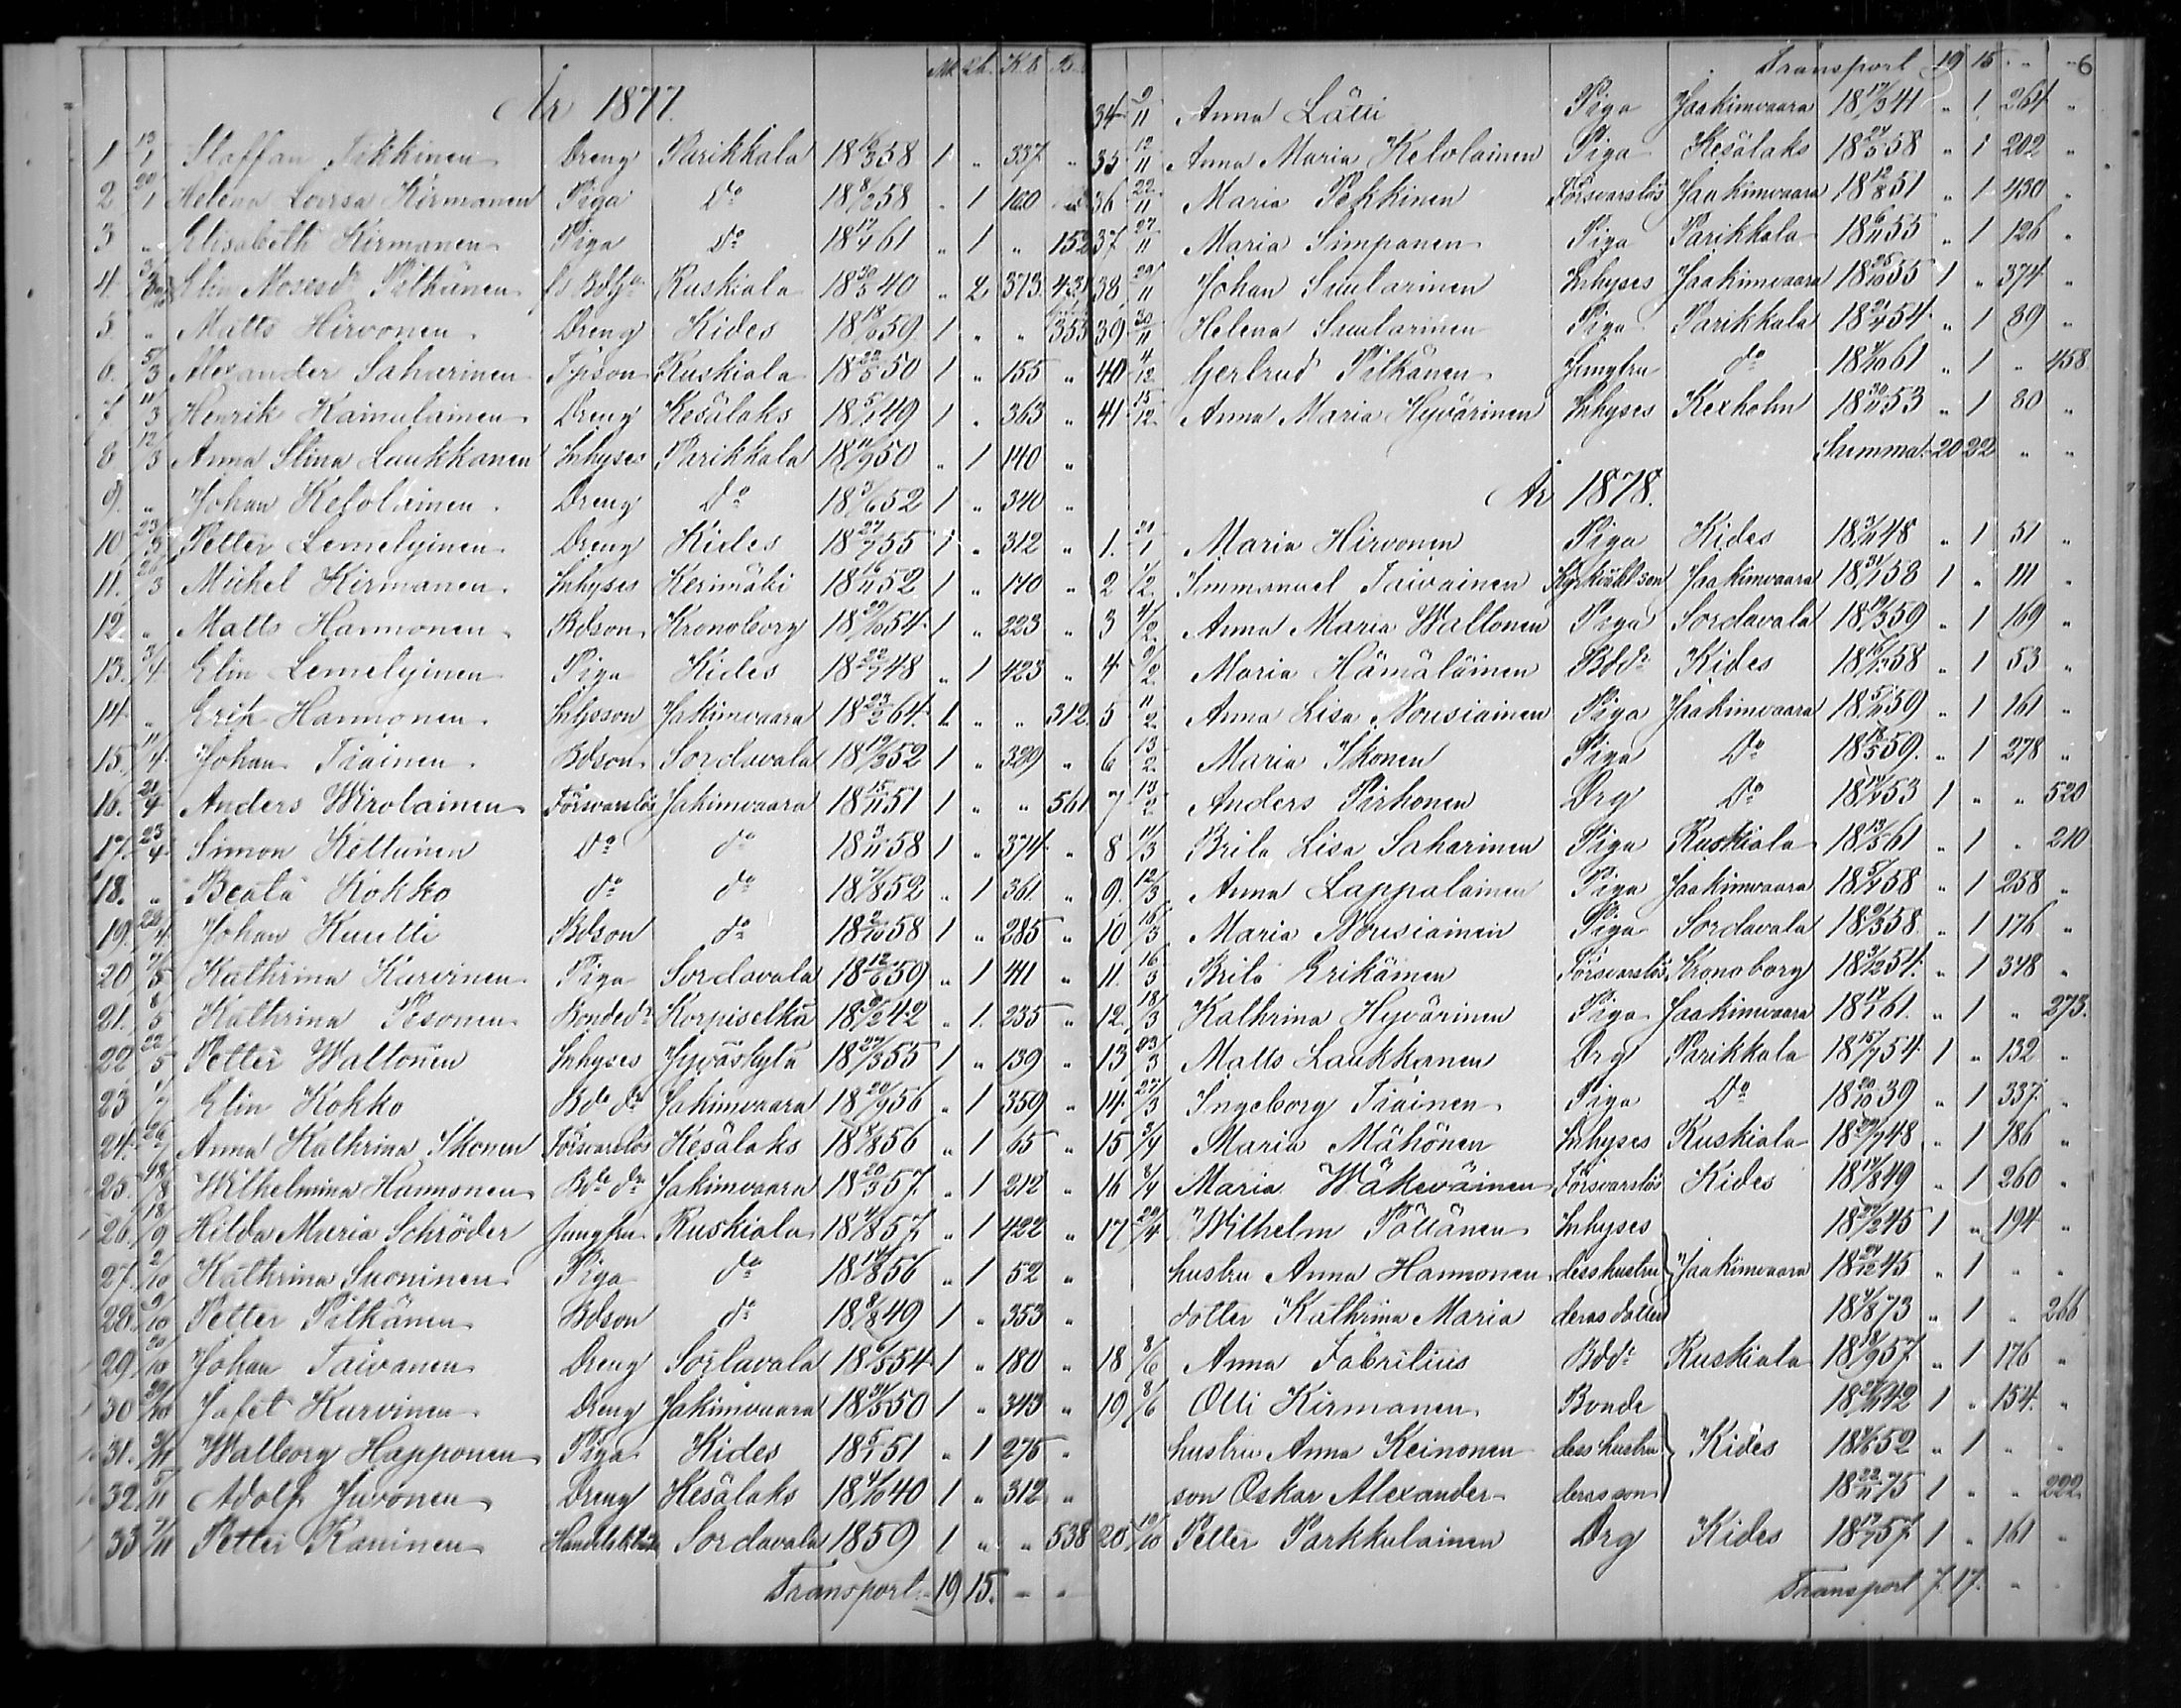 Mk Qk. K.b B.
År 1877.
1 13/1 Staffan Tikkinen Dreng Parikkala 18 58 1 " 337 "
2 20/1 Helena Lovisa Kirmanen Piga Do 18 8/ 58 " 1 160
3 " Elisabeth Kirmanen Piga Do 18 17/4 61 " 1 " 152
4. Elin Mosesdr Pitkänen Ruskiala 18 20/3 40 " 2 373 431
5. " Matts Hirvonen Dreng Kides 18 59. 1 " " 353
6. 5/3 Alexander Saharinen Ruskiala 18 22/5 50 1 " 155 "
7 11/3 Henrik Kainulainen Dreng Kesälaks 18 5/1 49 1 " 363 "
8 12/3 Anna Stina Laukkanen Inhyses Parikkala 18 11/9 50 " 1 140 "
9. " Johan Kelolainen. Dreng Do 18 3/6 52 1 " 340 "
10 23/3 Petter Lemelyinen Dreng Kides 18 27/7 55 1 " 312 "
11. 26/3 Mickel Kirmanen. Inhyses Kerimäki 18 16/11 52 1 " 140 "
12. " Matts Hannonen. Bdson Kronoborg 18 29/10 54 1 " 223 "
13. 3/4 Elin Lemelyinen Piga Kides 18 22/7 48 " 1 423 "
14. " Erik Hannonen. Inhysson Jakimvaara 18 23/2 64. 1 " " 312
15. 11/4 Johan Tiainen. Bdson Sordavala 18 52 1 " 329 "
16. 21/4 Anders Wirolainen Försvarslös Jakimvaara 18 15/11 51 1 " " 561
17. 23/4 Simon Kettunen Do do 18 3/11 58 1 " 374 "
18. " Beata Kokko do do 18 7/8 52 " 1 361. "
19. 28/4 Johan Kuutti Bdson do 18 2/10 58 1 " 285 "
20. 7/5 Kathrina Karvinen Piga Sordavala 18 12/6 59 " 1 411 "
21. 8/5 Kathrina Pesonen Bondedr Korpiselkä 18 42 " 1. 235 "
22 22/5 Petter Waltonen Inhyses Jyväskylä 18 27/3 55 1 " 139 "
23 Elin Kokko Bde dr Jakimvaara 18 20/9 56 " 1 359 "
24. 26/7 Anna Kathrina Ikonen Försvarslös Kesälaks 18 8/8 56 " 1 65 "
25. 13/8 Wilhelmina Hannonen Bde dr Jakimvaara 18 20/3 57 " 1 212 "
26. 18/9 Hilda Maria Schröder Jungfru Ruskiala 18 4/8 57 " 1 422 "
27. 2/10 Kathrina Suoninen Piga do 18 14/8 56 " 1 52 "
28. 9/10 Petter Pitkänen Bdson do 18 8/8 49 1 " 353 "
29. 20/10 Johan Taivanen Dreng Sorlavala 18 6/5 54 1 " 180 "
30 29/10 Jafet Karvinen Dreng Jakimvaara 18 31/3 50 1 " 343 "
31. Walborg Happonen Piga Kides 18 5/1 51 " 1 275 "
32. 5/11 Adolf Juvonen Dreng Kesälaks 18 4/10 40 1 " 312 "
33 7/11 Petter Kaninen Sordavala 1859 1 " " 538
Transport. 19 15. " "
Transport 19 15 " " 6
34 9/11 Anna Lätti Piga Jaakimvaara 18 17/3 41 " 1 264 "
35 12/11 Anna Maria Kelolainen Piga Kesälaks 18 27/5 58 " 1 202 "
36 22/11 Maria Pekkinen Försvarslös Jaakimvaara 18 12/8 51 " 1 430 "
37 27/11 Maria Simpanen Piga Parikkala 18 6/11 55 " 1 126 "
38 29/11 Johan Suutarinen Inhyses Jaakimvaara 18 25/10 55 1 " 374 "
39 30/11 Helena Suutarinen Piga Parikkala 18 21/4 54 " 1 89 "
40 4/12 Gertrud Pitkänen Jungfru do 18 61 " 1 " 458.
41 15/12 Anna Maria Hyvärinen Inhyses Kexholm 18 30/11 53 " 1 80 "
Summa. 20 22 " "
År 1878.
1. 21/1 Maria Hirvonen Piga Kides 18 48 " 1 51 "
2 1/2 Immanuel Taivainen Jaakimvaara 18 31/1 58 1 " 111 "
3 4/2. Anna Maria Waltonen Piga Sordavala 18 19/3 59 " 1 169 "
4 9/2. Maria Hämäläinen Bddr Kides 18 58 " 1 53 "
5 11/2. Anna Lisa Nousiainen Piga Jaakimvaara 18 59 " 1 161 "
6 13/2. Maria Ikonen Piga Do 18 18/5 59. " 1 278 "
7 13/2 Anders Pirhonen Drg Do 18 53 1 " " 520
8 11/3 Brita Lisa Saharinen Piga Ruskiala 18 13/5 61 " 1 " 210
9. 12/3 Anna Lappalainen Piga Jaakimvaara 18 58 " 1 258 "
10 16/3 Maria Nousiainen Piga Sordavala 18 9/3 58. " 1 176 "
11. 16/3 Brita Erikäinen Försvarslös Kronoborg 18 3/12 54. " 1 348 "
12. 18/3 Kathrina Hyvärinen Piga Jaakimvaara 18 17/1 61. " 1 " 273.
13 23/3 Matts Laukkanen Drg Parikkala 18 15/7 54 1 " 132 "
14. 27/3 Ingeborg Tiainen. Piga Do 18 20/10 39 " 1 337. "
15 3/4 Maria Mähönen Inhyses Ruskiala 18 29/7 48 " 1 186 "
16 8/4 Maria Wäkeväinen Försvarslös Kides 18 14/8 49 " 1 260 "
17 29/4 Wilhelm Pöllänen Inhyses 18 27/2 45 1 " 194 "
hustru Anna Hannonen dess hustru Jaakimvaara 18 24/12 45 " 1 " "
dotter Kathrina Maria deras dotter 18 4/8 73 " 1 " 266
18 8/6 Anna Fabritius Bddr Ruskiala 18 18/9 57 " 1 176 "
19 8/6 Olli Kirmanen Bonde 18 42 1 " 154. "
hustru Anna Keinonen dess hustru Kides 18 52 " 1 " "
son Oskar Alexander deras son 18 22/11 75 1 " " 222.
20 19/10 Petter Parkkulainen Drg Kides 18 17/7 57 1 " 161 "
Transport 7. 17. " "